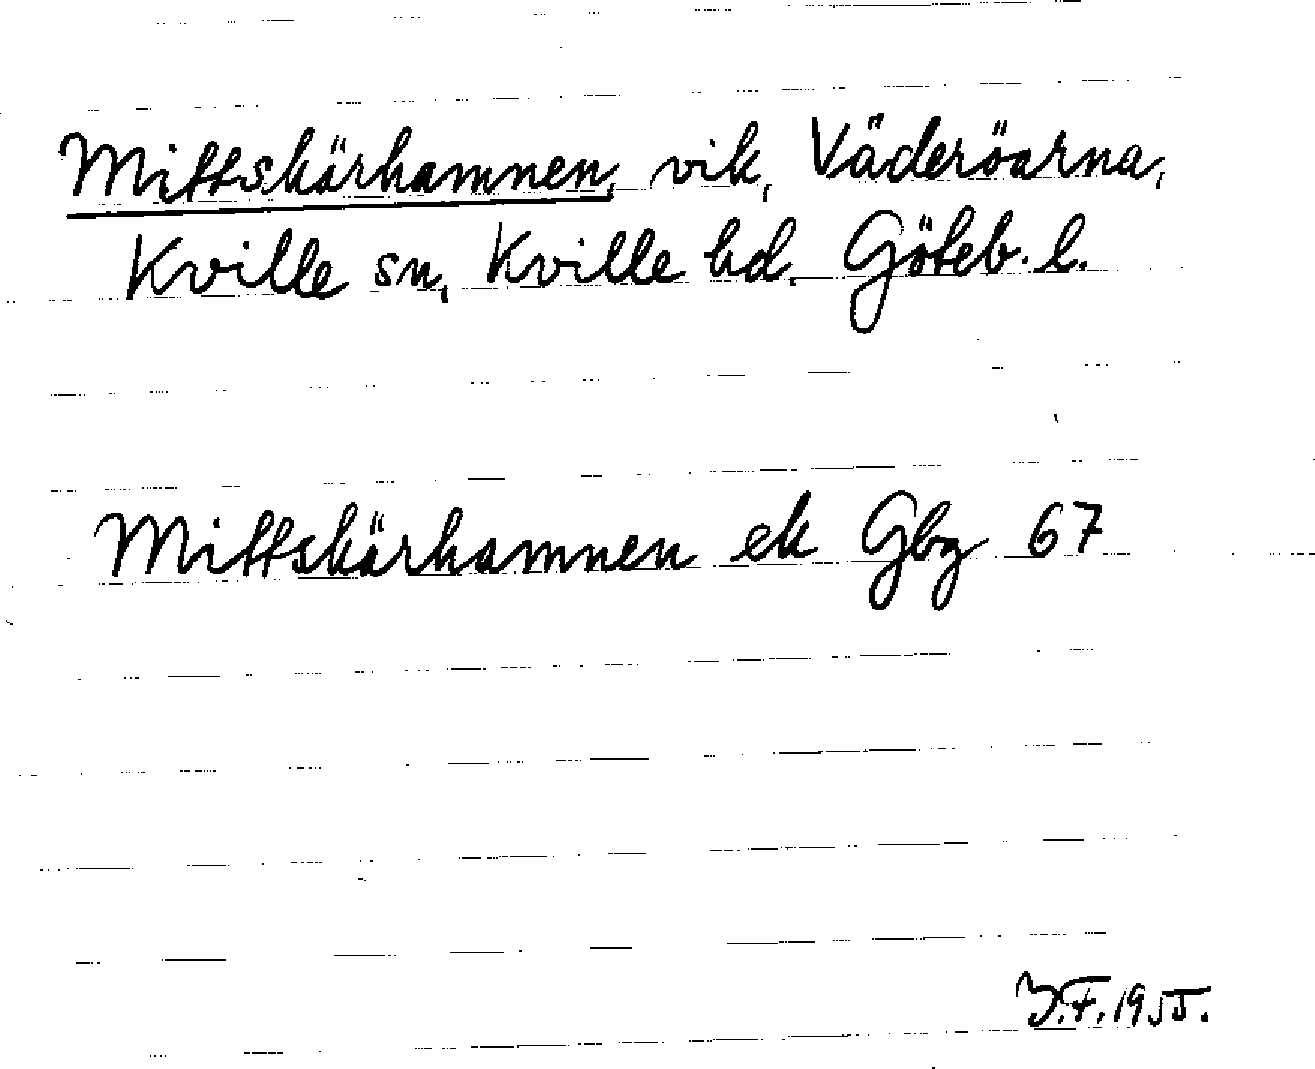 Mittskärhamnen, vik, Väderöarna,
Kville sn, Kville hd. Göteb. l.
Mittskärhamnen ek Gbg 67
1955.